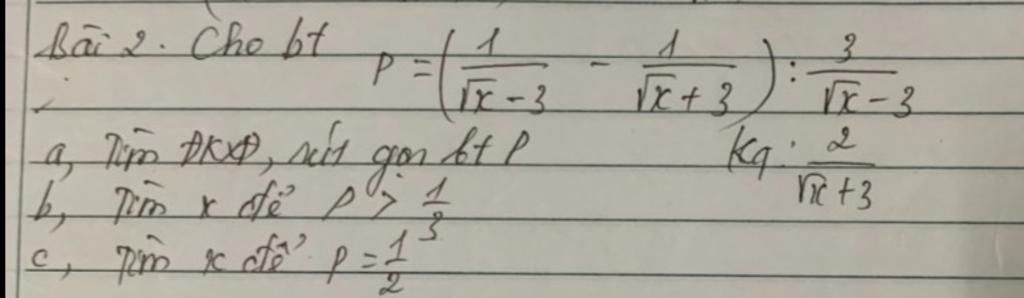 Bài 2. Cho bt P = (1/(√x - 3) - 1/(√x + 3)) : 3/(√x - 3)
a, Tìm ĐKXĐ, rút gọn bt P Kq: 2/(√x + 3)
b, Tìm x để P > 1/3
c, Tìm x để P = 1/2